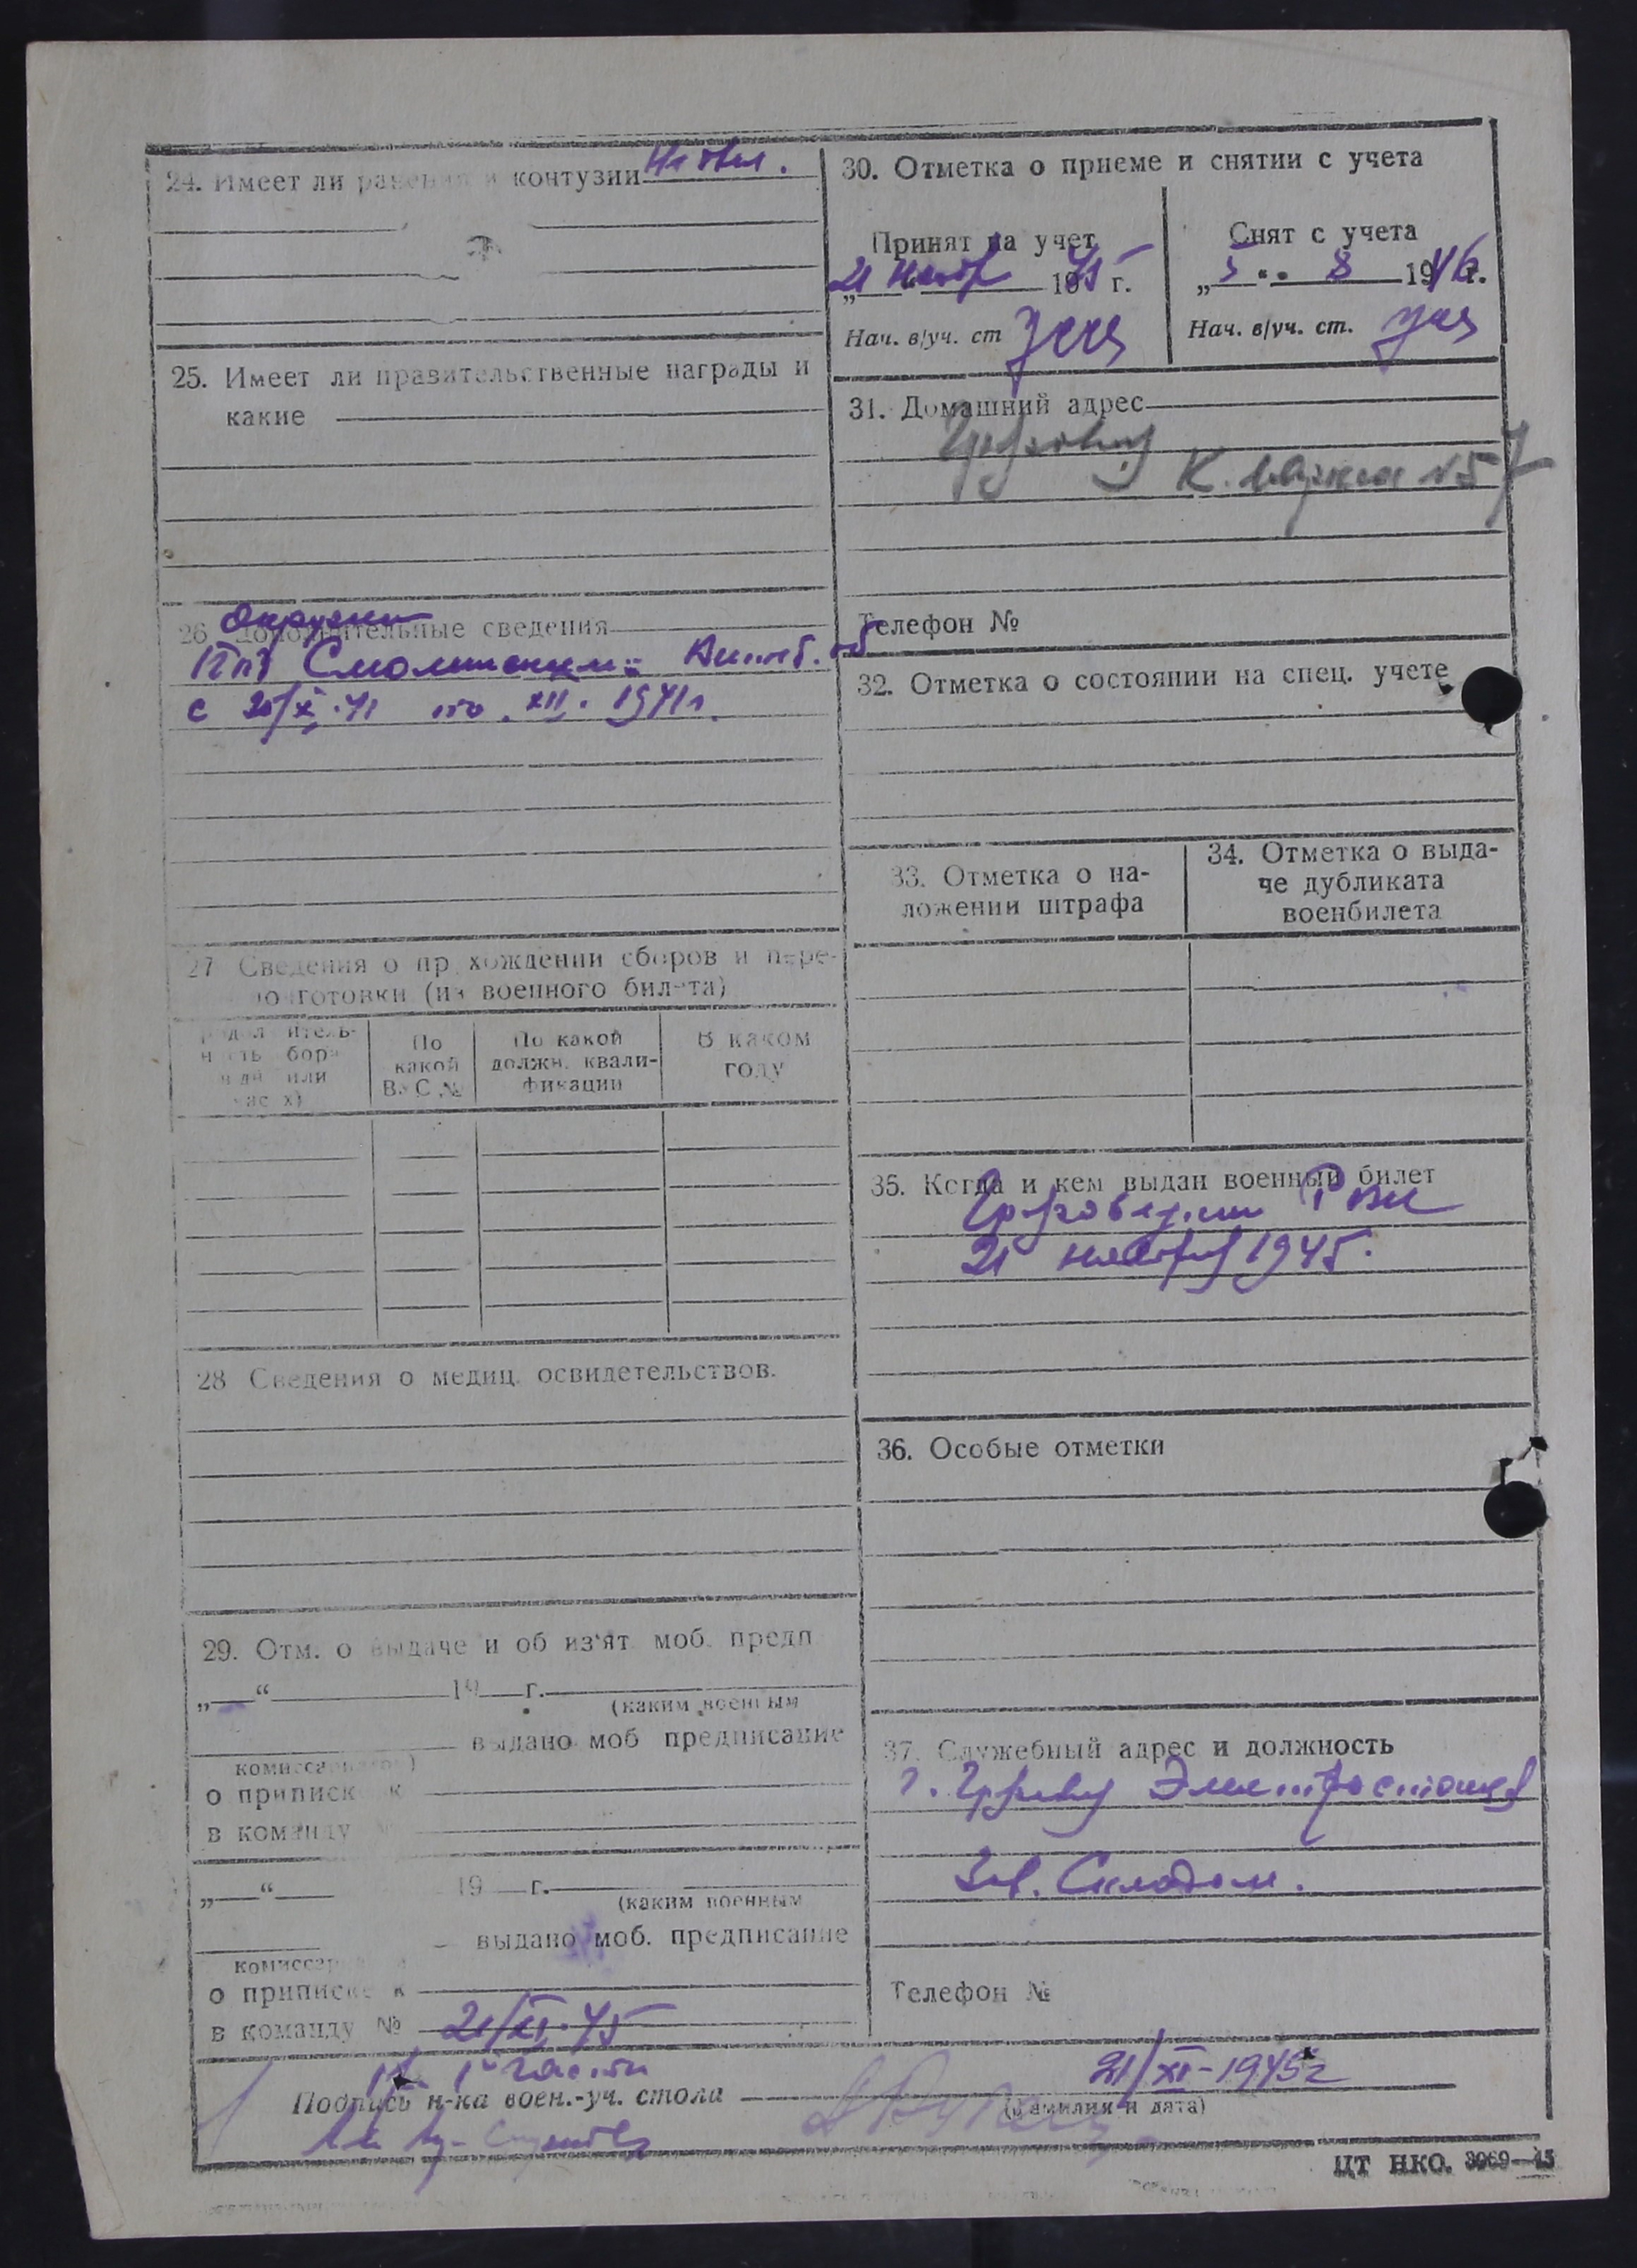 24. Имеет ли ранения и контузии
25. Имеет ли правительственные награды и
какие
26. Дополнительные сведения
с 20/X.41 по XII. 1941г.
27 Сведения о прохождении сборов и пере-
подготовки (из военного билета)
По
какой
ВУС №
По какой
должн. квали-
фикации
В каком
году
28 Сведения о медиц. освидетельствов.
29. Отм. о выдаче и об из'ят. моб. предп
„ “ 19 г.
(каким военным
выдано моб предписание
комиссариатом)
о приписке к
в команду №
„ “ 19 г.
(каким военным
выдано моб. предписание
о приписке к
в команду № 21/XI.45
1й части
Подпись н-ка воен.-уч. стола
30. Отметка о приеме и снятии с учета
Принят на учет
„21 нояб 1945 г.
Нач. в/уч. ст
Снят с учета
„5 “ 8 1946 г.
Нач. в/уч. ст.
31. Домашний адрес
К. Маркса № 57
Телефон №
32. Отметка о состоянии на спец. учете
33. Отметка о на-
ложении штрафа
34. Отметка о выда-
че дубликата
военбилета
35. Когда и кем выдан военный билет
РВК
21 ноября 1945.
36. Особые отметки
37. Служебный адрес и должность
г. Электростанция
Зав. Складом.
Телефон №
21/XI-1945г
(фамилия и дата)
ЦТ НКО. 3069—45